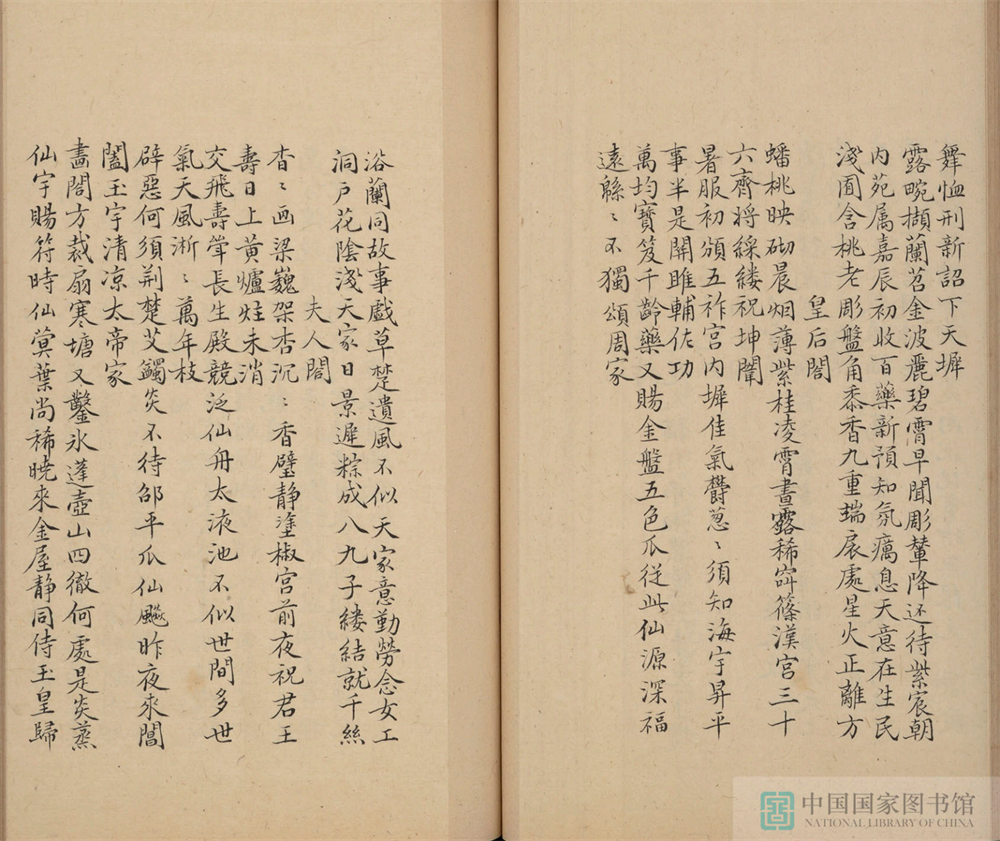 舞恤刑新詔下天墀
露畹擷蘭苕金波麗碧霄早聞彫輦降还待紫宸朝
内苑属嘉辰初收百藥新預知氛癘息天意在生民
淺囿含桃老彫盤角黍香九重瑞扆處星火正離方
皇后閤
蟠桃映砌晨烟薄紫桂凌霄晝露稀嶭篠漢宫三十
六齊将綵縷祝坤闈
暑服初頒五祚宫内墀佳氣欝葱〻須知海宇昇平
事半是関雎輔佐功
萬均寳笈千齡藥又賜金盤五色瓜従此仙源深福
遠緜〻不獨頌周家
浴蘭同故事戲草楚遺風不似天家意勤勞念女工
洞户花陰淺天家日景遲粽成八九子縷結就千絲
夫人閤
杳〻画梁巍架杏沉〻香壁静塗椒宫前夜祝君王
壽日上黄爐炷未消
交飛壽斝長生殿競泛仙舟太液池不似世間多世
氣天風淅〻萬年枝
辟惡何須荆楚艾蠲炎不待邵平瓜仙飇昨夜来閶
闔玉宇清凉太帝家
畵閤方裁扇寒塘又鑿氷蓬壺山四徹何處是炎蒸
仙宇賜符時仙蓂葉尚稀曉来金屋静同侍玉皇歸
中国国家图书馆
NATIONAL LIBRARY OF CHINA